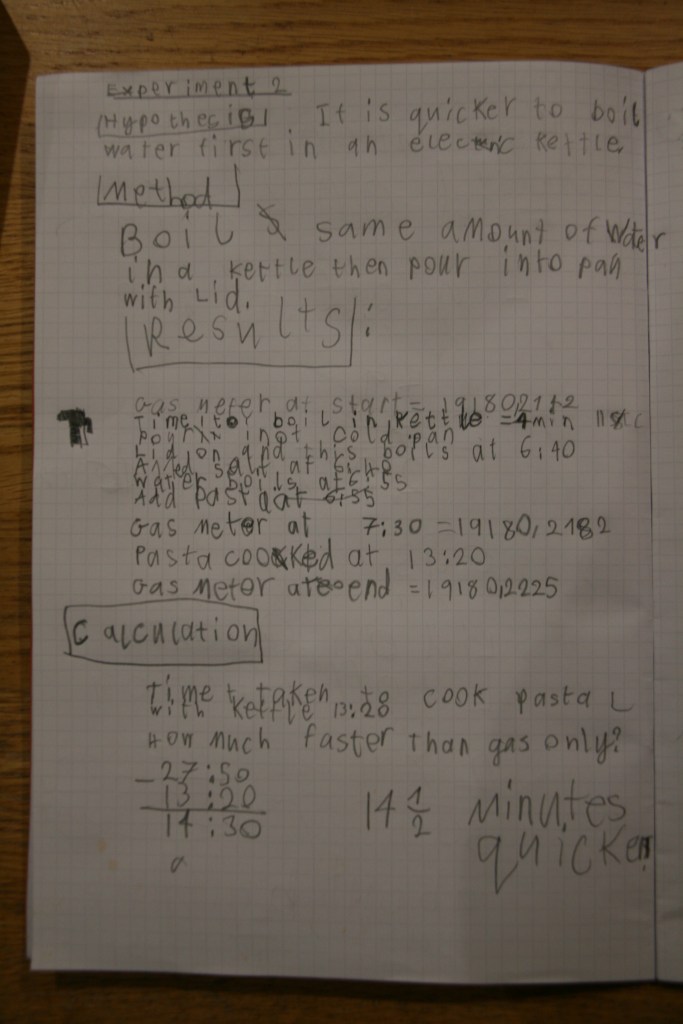 Experiment 2
Hypothecis It is quicker to boil
water first in an electric kettle
Method
Boil same amount of water
in a kettle then pour into pan
with Lid.
Results:
Gas meter at start =
Time to boil in kettle = 4 min
pour into cold pan
Lid on and this boils at 6:40
Added salt at
water boils at 6:55
Add pasta at 6:55
Gas meter at 7:30 = 19180,2182
Pasta cooked at 13:20
Gas meter at end = 19180,2225
Calculation
Time taken to cook pasta
with kettle 13:20
How much faster than gas only?
-27:50
13:20
14:30
14 1/2 minutes
quicker